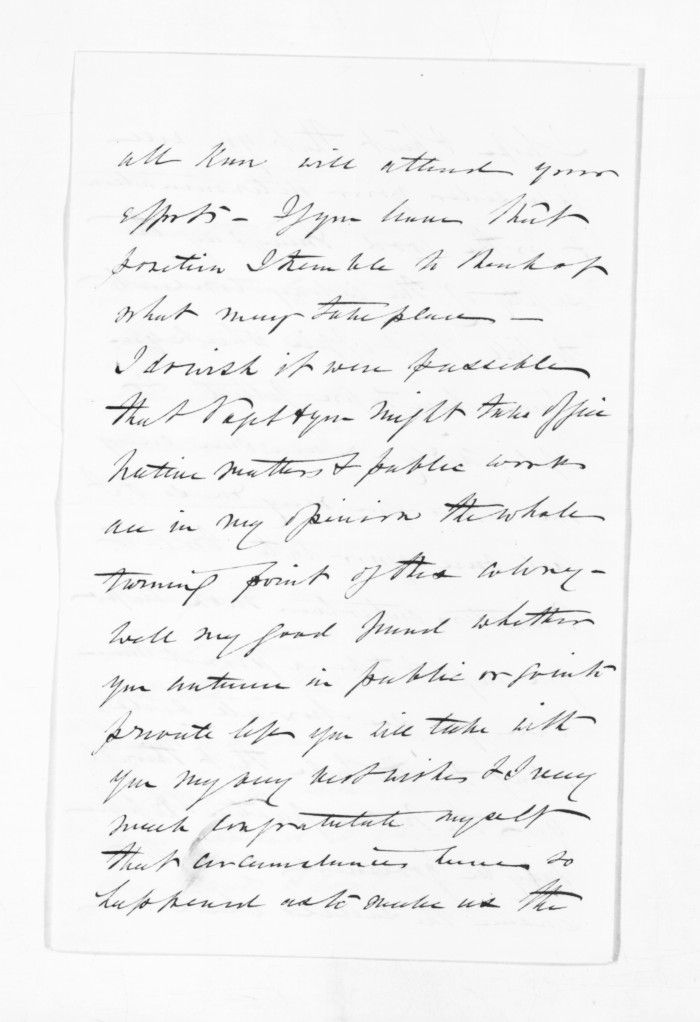 all know will attend your
efforts – If you leave that
position I tremble to think of
what may take place –
I do wish it were possible
that Vogel & you might take office
Native matters & public works
are in my opinion the whole
turning point of this colony –
Well my good friend whether
you continue in public or go into
private life you will take with
you my very best wishes & I very
much congratulate myself
that circumstances have so
happened as to make us the